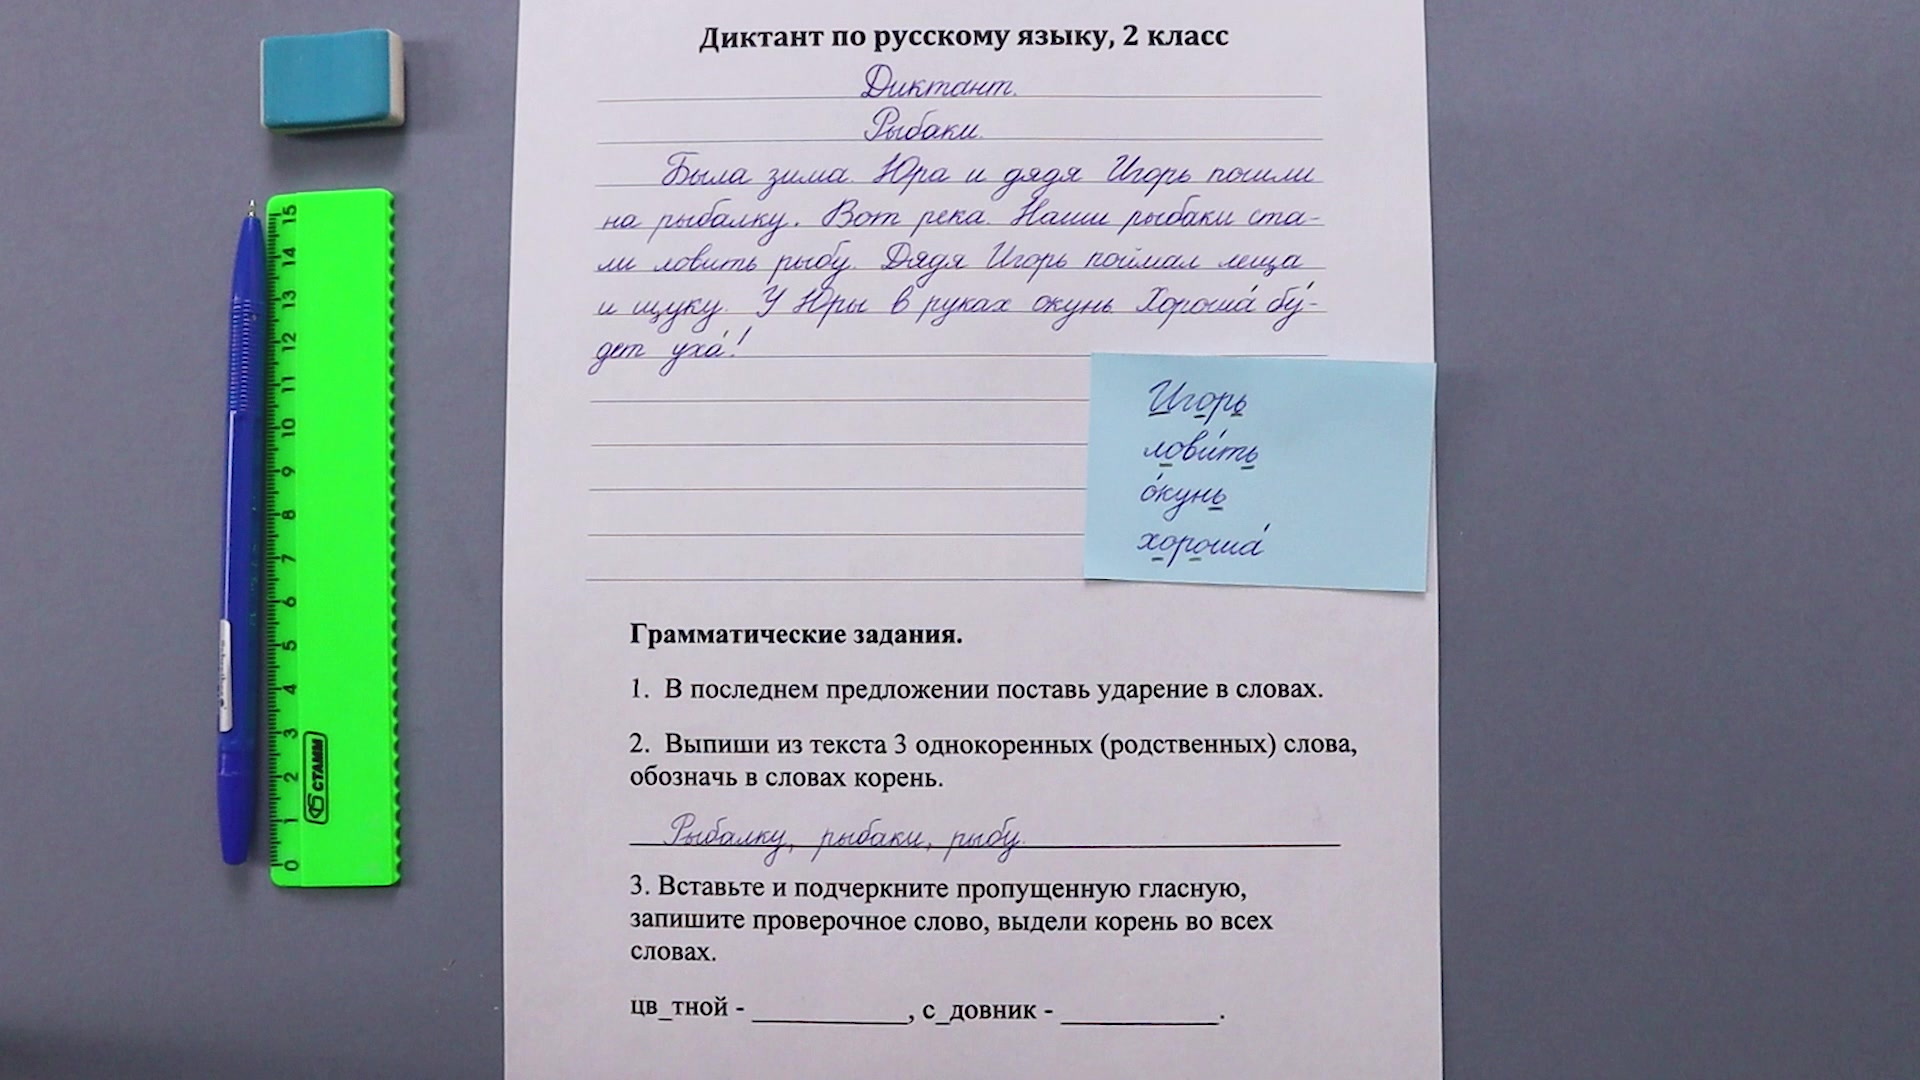 Диктант по русскому языку, 2 класс
Диктант.
Рыбаки.
Была зима. Юра и дядя Игорь пошли
на рыбалку. Вот река. Наши рыбаки ста-
ли ловить рыбу. Дядя Игорь поймал леща
и щуку. У Юры в руках окунь. Хороша́ бу́-
дет уха́!
Игорь
лови́ть
о́кунь
хороша́
Грамматические задания.
1. В последнем предложении поставь ударение в словах.
2. Выпиши из текста 3 однокоренных (родственных) слова,
обозначь в словах корень.
Рыбалку, рыбаки, рыбу.
3. Вставьте и подчеркните пропущенную гласную,
запишите проверочное слово, выдели корень во всех
словах.
цв_тной - ___________, с_довник - ___________.
15 14 13 12 11 10 9 8 7 6 5 4 3 2 1 0
СТАММ